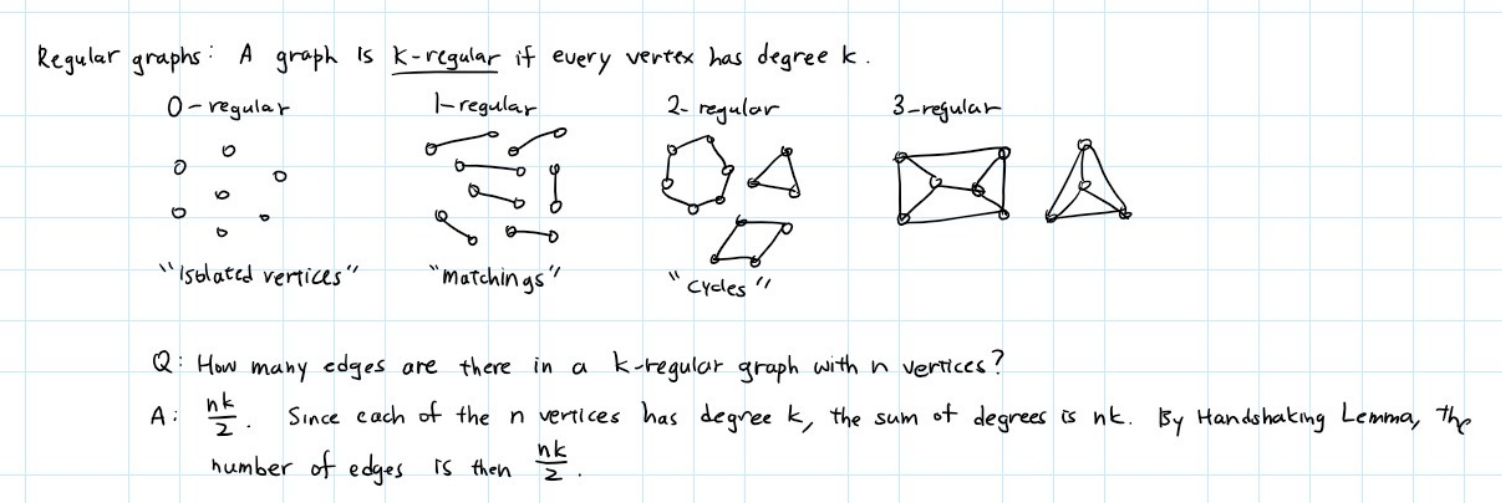 Regular graphs: A graph is k-regular if every vertex has degree k.
0-regular 1-regular 2-regular 3-regular
"isolated vertices" "matchings" "cycles"
Q: How many edges are there in a k-regular graph with n vertices?
A: nk/2. Since each of the n vertices has degree k, the sum of degrees is nk. By Handshaking Lemma, the
number of edges is then nk/2.